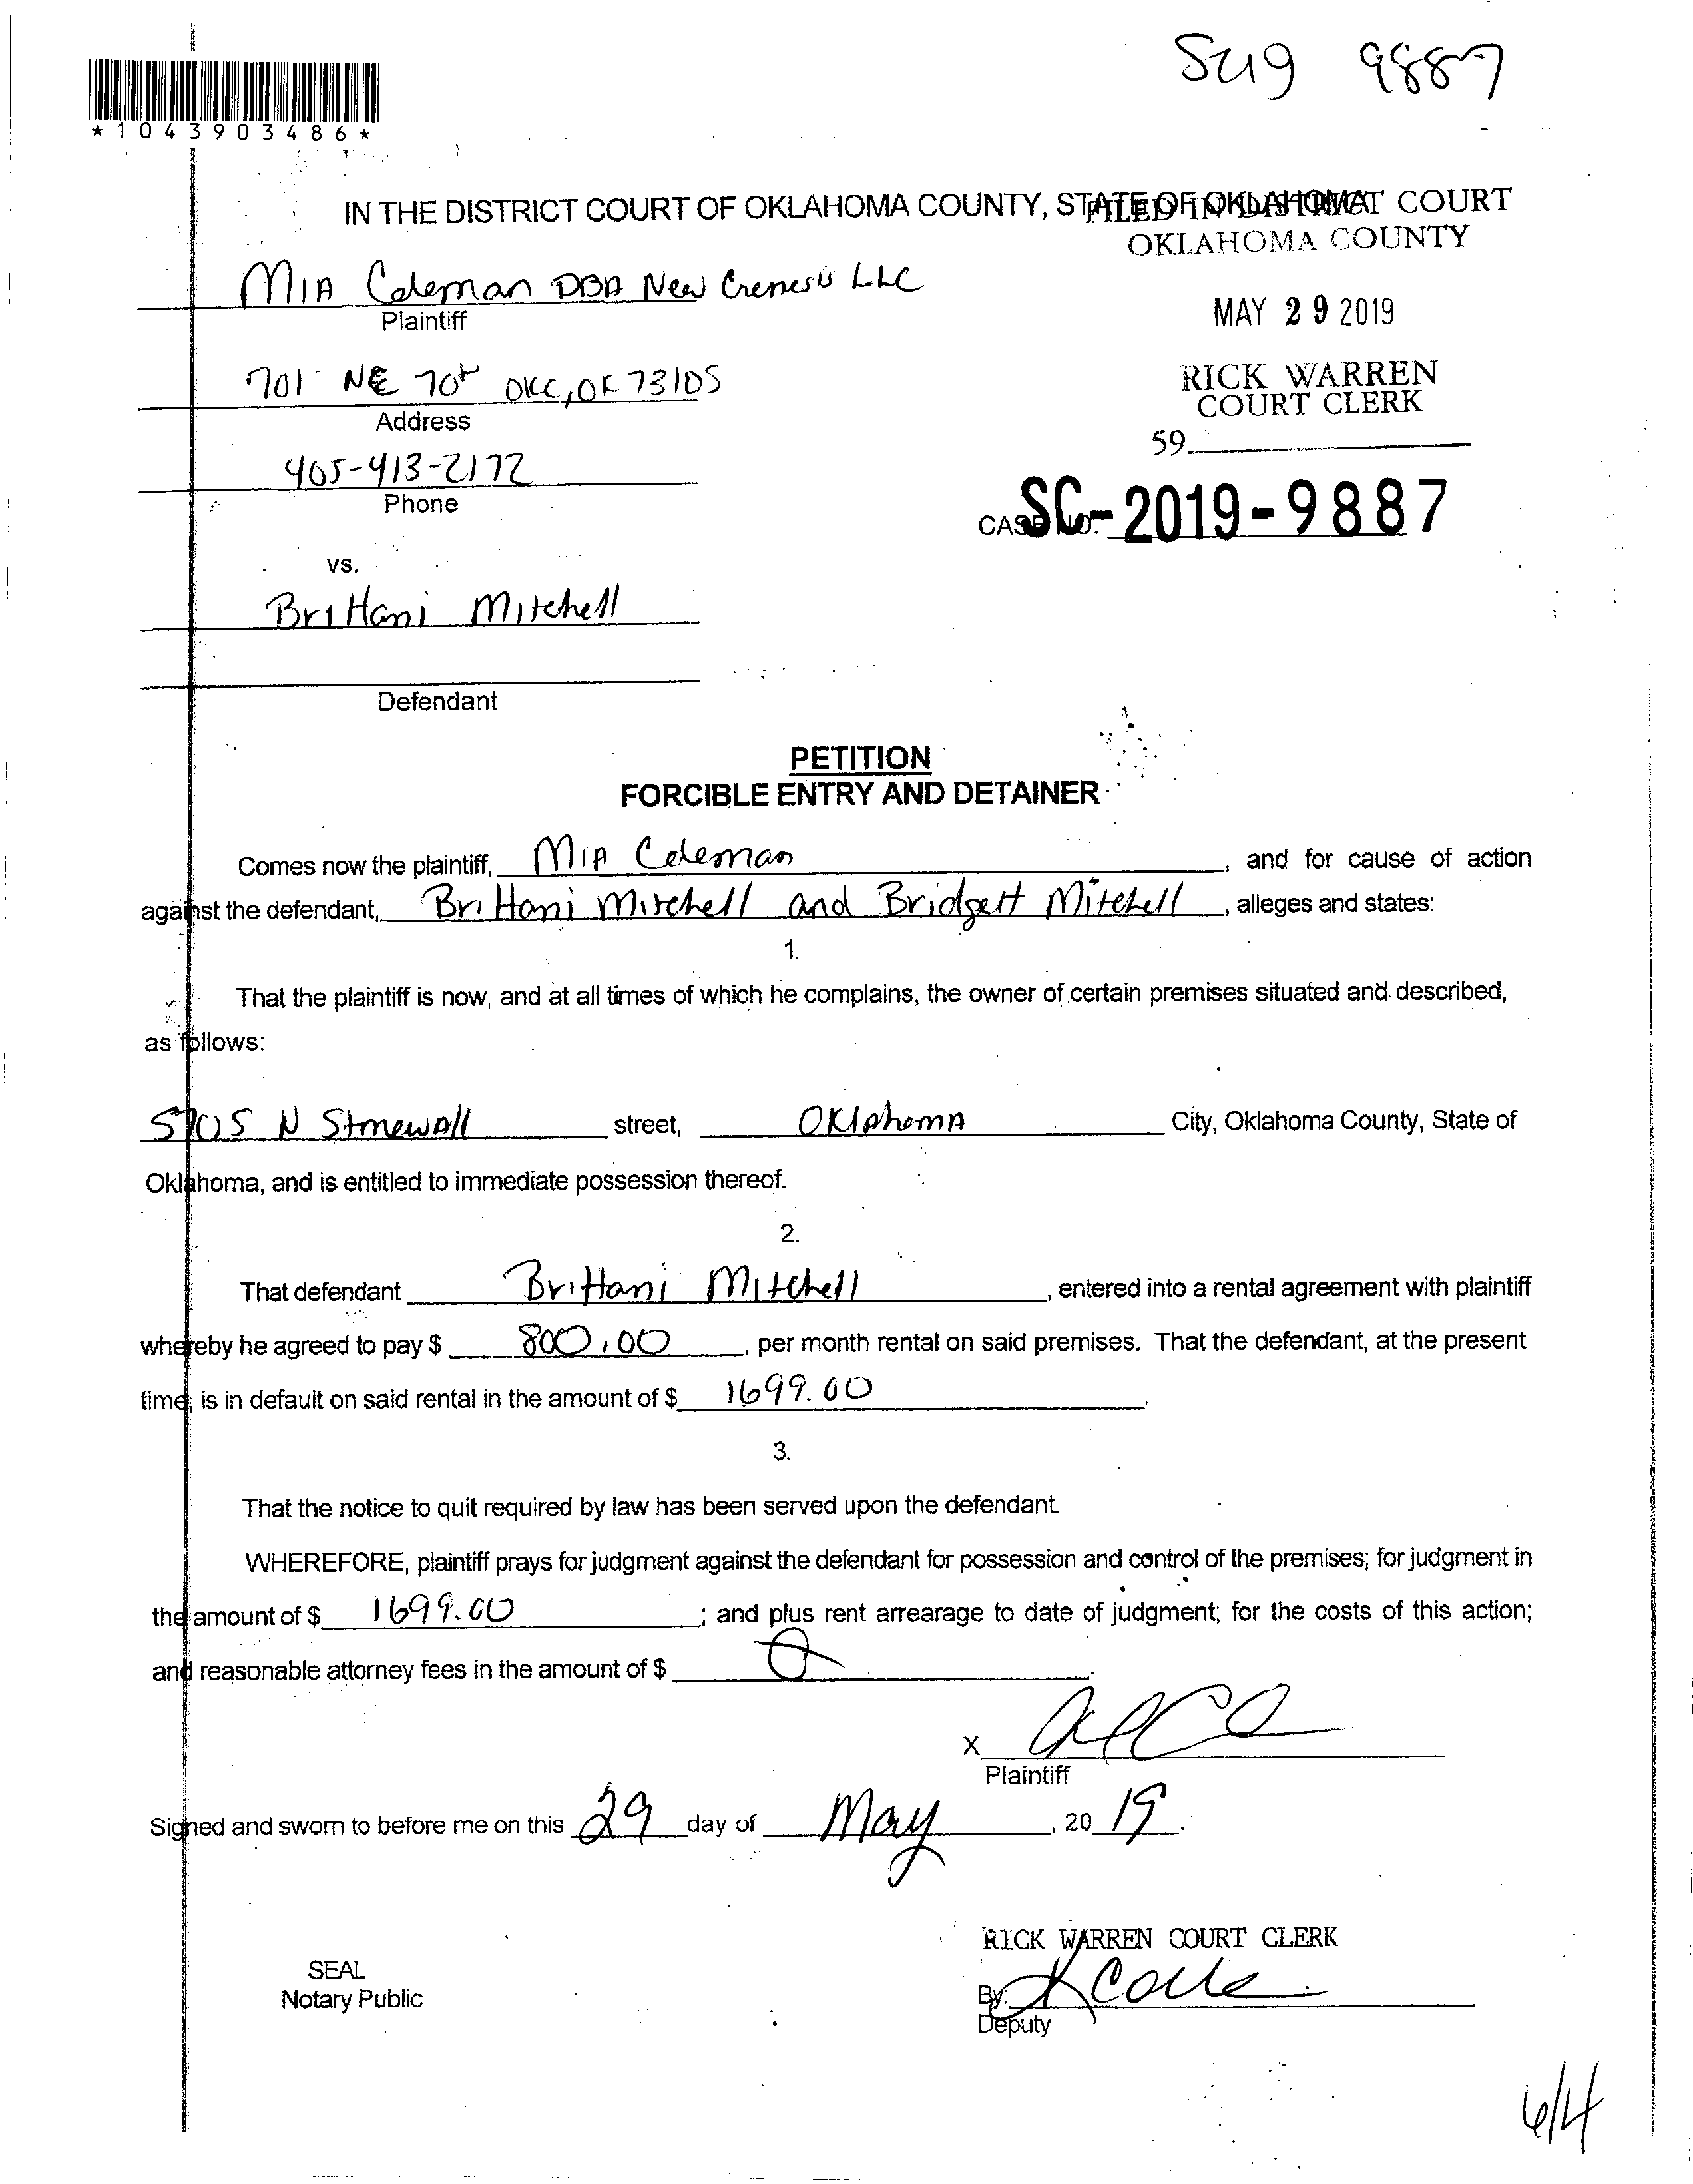 SC19 9887
*1043903486*
IN THE DISTRICT COURT OF OKLAHOMA COUNTY, STATE OF OKLAHOMA
FILED IN DISTRICT COURT
OKLAHOMA COUNTY
MIA Coleman DBA New Genesis LLC
Plaintiff
MAY 29 2019
701 NE 70th OKC, OK 73105
Address
RICK WARREN
COURT CLERK
59
405-413-2172
Phone
CASE NO. SC-2019-9887
vs.
Brittani Mitchell
Defendant
PETITION
FORCIBLE ENTRY AND DETAINER
Comes now the plaintiff, MIA Coleman, and for cause of action
against the defendant, Brittani Mitchell and Bridgett Mitchell, alleges and states:
1.
That the plaintiff is now, and at all times of which he complains, the owner of certain premises situated and described,
as follows:
5705 N Stonewall street, Oklahoma City, Oklahoma County, State of
Oklahoma, and is entitled to immediate possession thereof.
2.
That defendant Brittani Mitchell, entered into a rental agreement with plaintiff
whereby he agreed to pay $ 800.00, per month rental on said premises. That the defendant, at the present
time, is in default on said rental in the amount of $ 1699.00.
3.
That the notice to quit required by law has been served upon the defendant.
WHEREFORE, plaintiff prays for judgment against the defendant for possession and control of the premises; for judgment in
the amount of $ 1699.00; and plus rent arrearage to date of judgment; for the costs of this action;
and reasonable attorney fees in the amount of $ 0.
X
Plaintiff
Signed and sworn to before me on this 29 day of May, 2019.
RICK WARREN COURT CLERK
SEAL
Notary Public
By:
Deputy
6/4